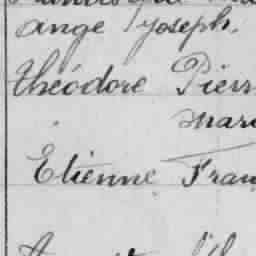 ange Joseph.
Théodore Pierr
Mari
Etienne Fran